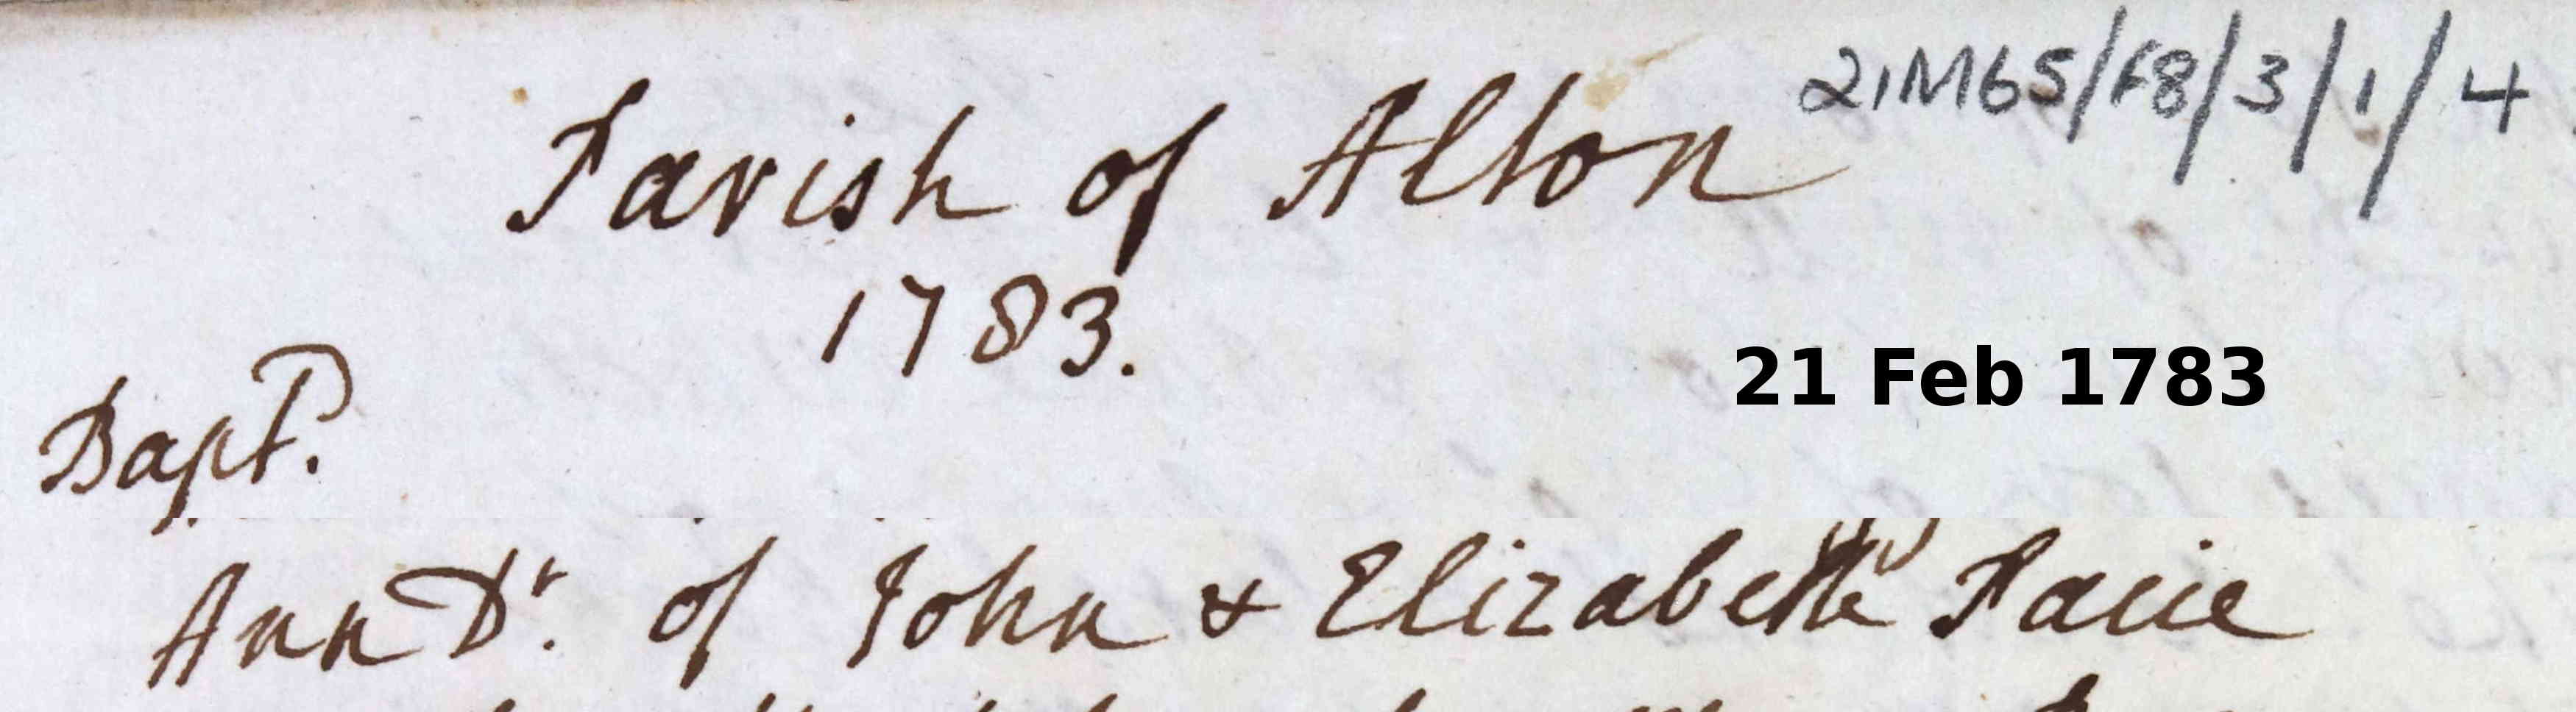 21M65/F8/3/1/4
Parish of Alton
1783.
21 Feb 1783
Bapt.
Ann Dr. of John & Elizabeth